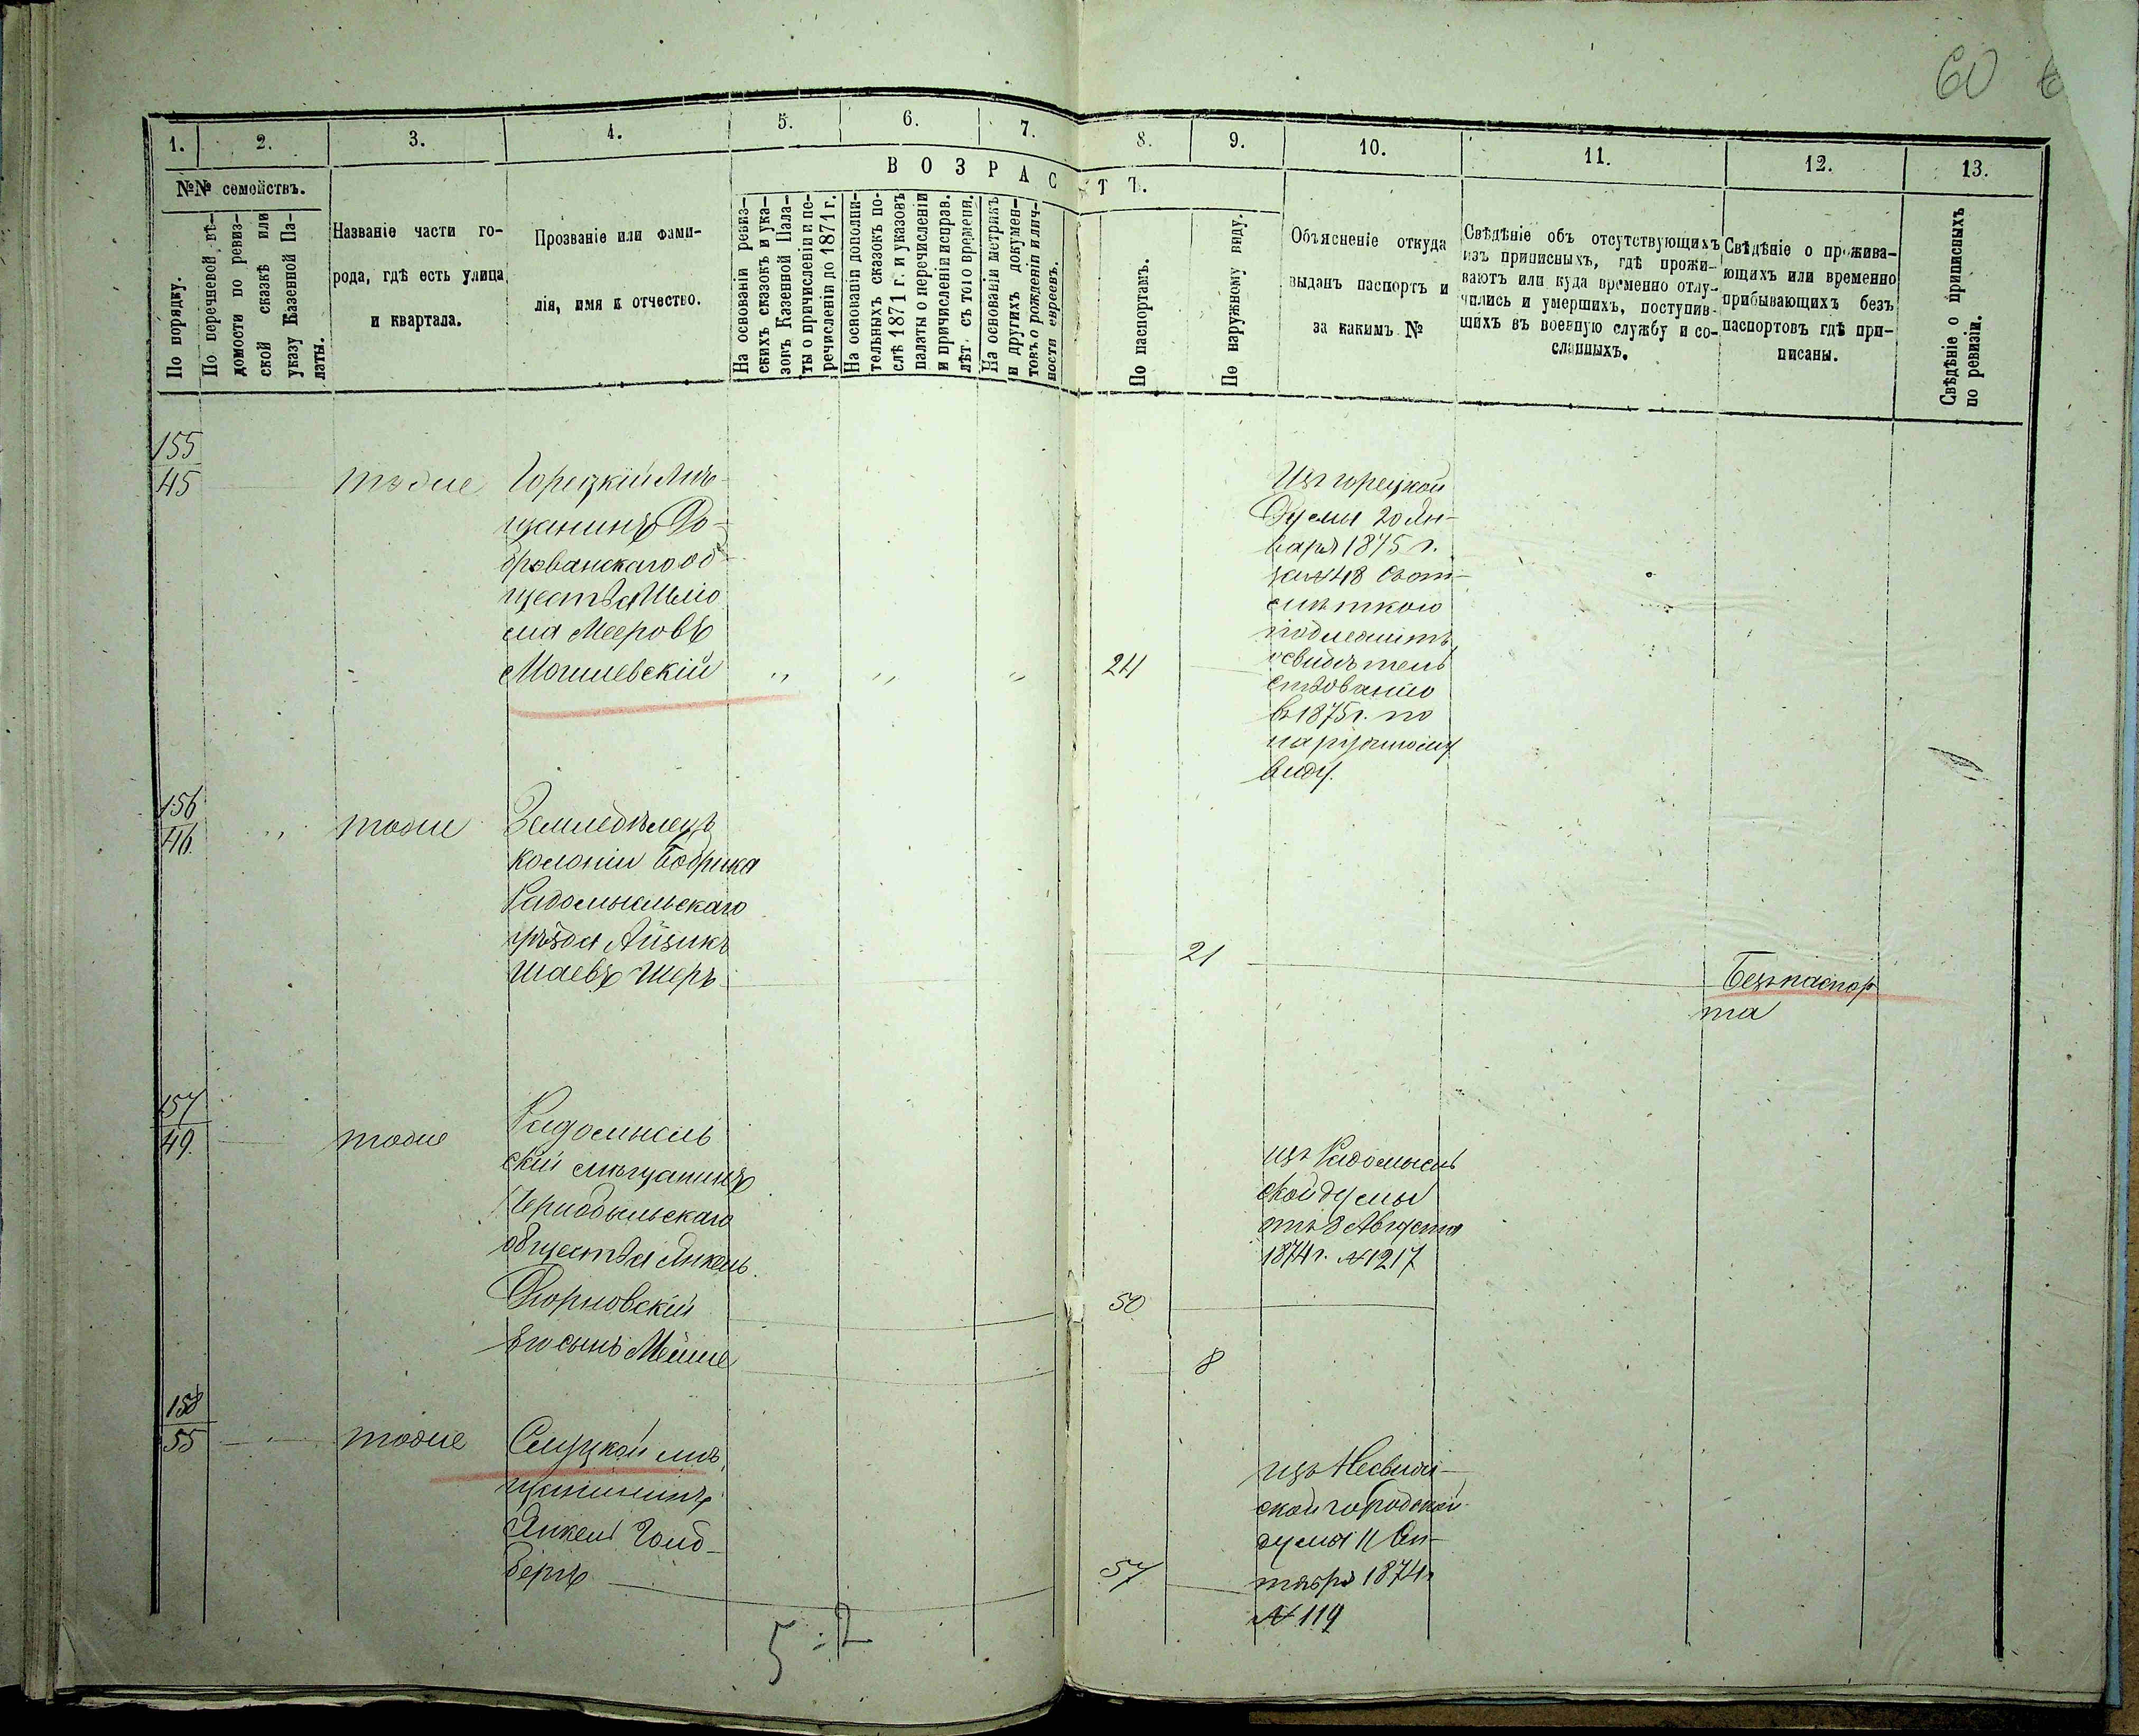 60
1.
2.
3.
4.
5.
6.
7.
8.
9.
10.
11.
12.
13.
№№ семействъ.
ВОЗРАСТЪ.
По порядку.
По перечневой вѣ-
домости по ревиз-
ской сказкѣ или
указу Казенной Па-
латы.
Названіе части го-
рода, гдѣ есть улица
и квартала.
Прозваніе или фами-
лія, имя и отчество.
На основаніи ревиз-
скихъ сказокъ и ука-
зовъ Казенной Пала-
ты о причисленіи и пе-
речисленіи до 1871 г.
На основаніи дополни-
тельныхъ сказокъ по-
слѣ 1871 г. и указовъ
палаты о перечисленіи
и причисленіи исправ.
лѣт. съ того времени.
На основаніи метрикъ
и другихъ докумен-
товъ о рожденіи и лич-
ности евреевъ.
По паспортамъ.
По наружному виду.
Объясненіе откуда
выданъ паспортъ и
за какимъ №
Свѣдѣніе объ отсутствующихъ
изъ приписныхъ, гдѣ прожи-
ваютъ или куда временно отлу-
чились и умершихъ, поступив-
шихъ въ военную службу и со-
сланныхъ.
Свѣдѣніе о прожива-
ющихъ или временно
прибывающихъ безъ
паспортовъ гдѣ при-
писаны.
Свѣдѣніе о приписныхъ
по ревизіи.
155
45
тоже
Горецкій Мѣ-
щанинъ До-
бровanskаго об-
щества Шлio
ма Мееровъ
Могилевскій
24
Изъ горецкой
Думы 20 Ян-
варя 1875 г.
за №48 съ от-
мѣткою
подлежитъ
освидѣтель
ствованію
въ 1875 г. по
наружному
виду.
156
46
тоже
Земледѣлецъ
колоніи Бобрика
Радомысльскаго
уѣзда Айзикъ
Шаевъ Шеръ
21
Безъ паспор
та
157
49
тоже
Радомысль
скій мѣщанинъ
Чернобыльскаго
общества Янкель
Дорновскій
50
изъ Радомысль
ской думы
отъ 8 Августа
1874 г. №1217
Его сынъ Мейше
8
158
55
тоже
Слуцкой мѣ
щанинъ
Янкель Голд-
бергъ
57
изъ Несвиж-
ской городской
думы 11 Ок-
тября 1874 г
№119
5 : 2